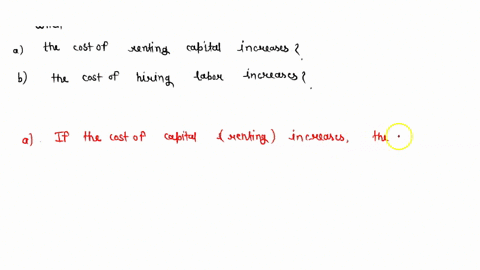 a) the cost of renting capital increases?.
b) the cost of hiring labor increases?.
a). If the cost of capital (renting) increases, the